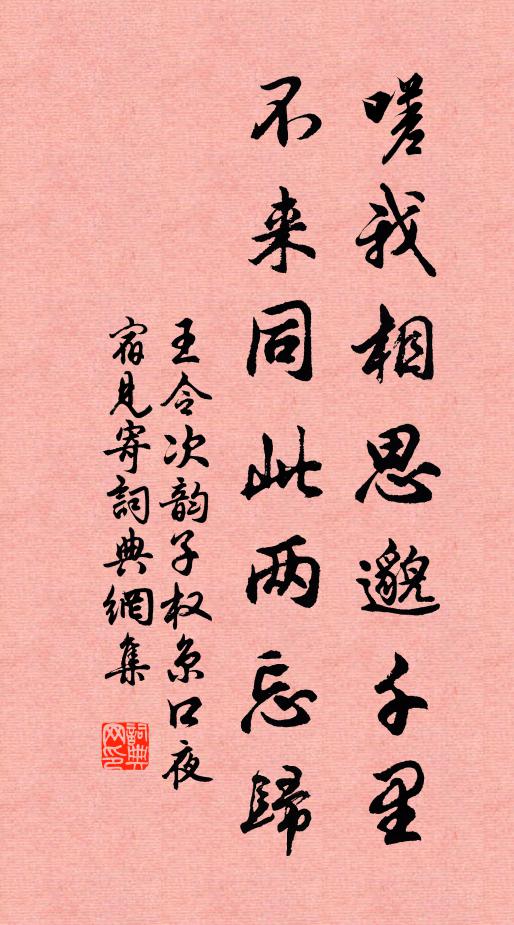 嗟我相思邈千里
不来同此两忘歸
王令次韵子权京口夜
宿見寄詞典網集
詞典
网印